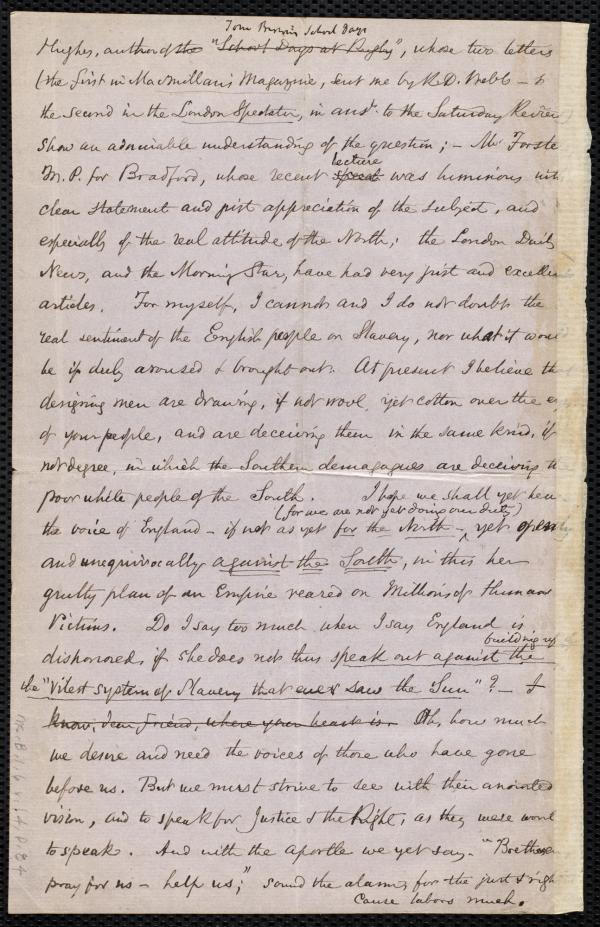 Tom Brown's School Days
Hughes, author of the "School Days at Rugby", whose two letters
(the first in Macmillan's Magazine, sent me by R.D. Webb – &
the second in the London Spectator, in ansr. to the Saturday Review
show an admirable understanding of the question; – Mr Forste
M.P. for Bradford, whose recent speech lecture was luminous with
clear statement and just appreciation of the subject, and
especially of the real attitude of the North; the London Daily
News, and the Morning Star, have had very just and excellen
articles. For myself, I cannot and I do not doubt the
real sentiment of the English people on Slavery, nor what it would
be if duly aroused & brought out. At present I believe that
designing men are drawing, if not wool, yet cotton over the e
of your people, and are deceiving them in the same kind, if
not degree, in which the Southern demagogues are deceiving the
poor white people of the South. I hope we shall yet hear
(for we are not yet doing our duty)
the voice of England – if not as yet for the North –, yet openly
and unequivocally against the South, in this her
guilty plan of an Empire reared on Millions of Human
Victims. Do I say too much when I say England is
building up
dishonored if she does not thus speak out against the
the "vilest system of Slavery that ever saw the Sun"? – I
know, dear friend, where your heart is. Oh, how much
we desire and need the voices of those who have gone
before us. But we must strive to see with their anointed
vision, and to speak for Justice & the Right, as they were wont
to speak. And with the apostle we yet say – "Brethren
pray for us – help us;" sound the alarm, for the just & righ
cause labors much.
Ms.B.1.6 v.14 p.84